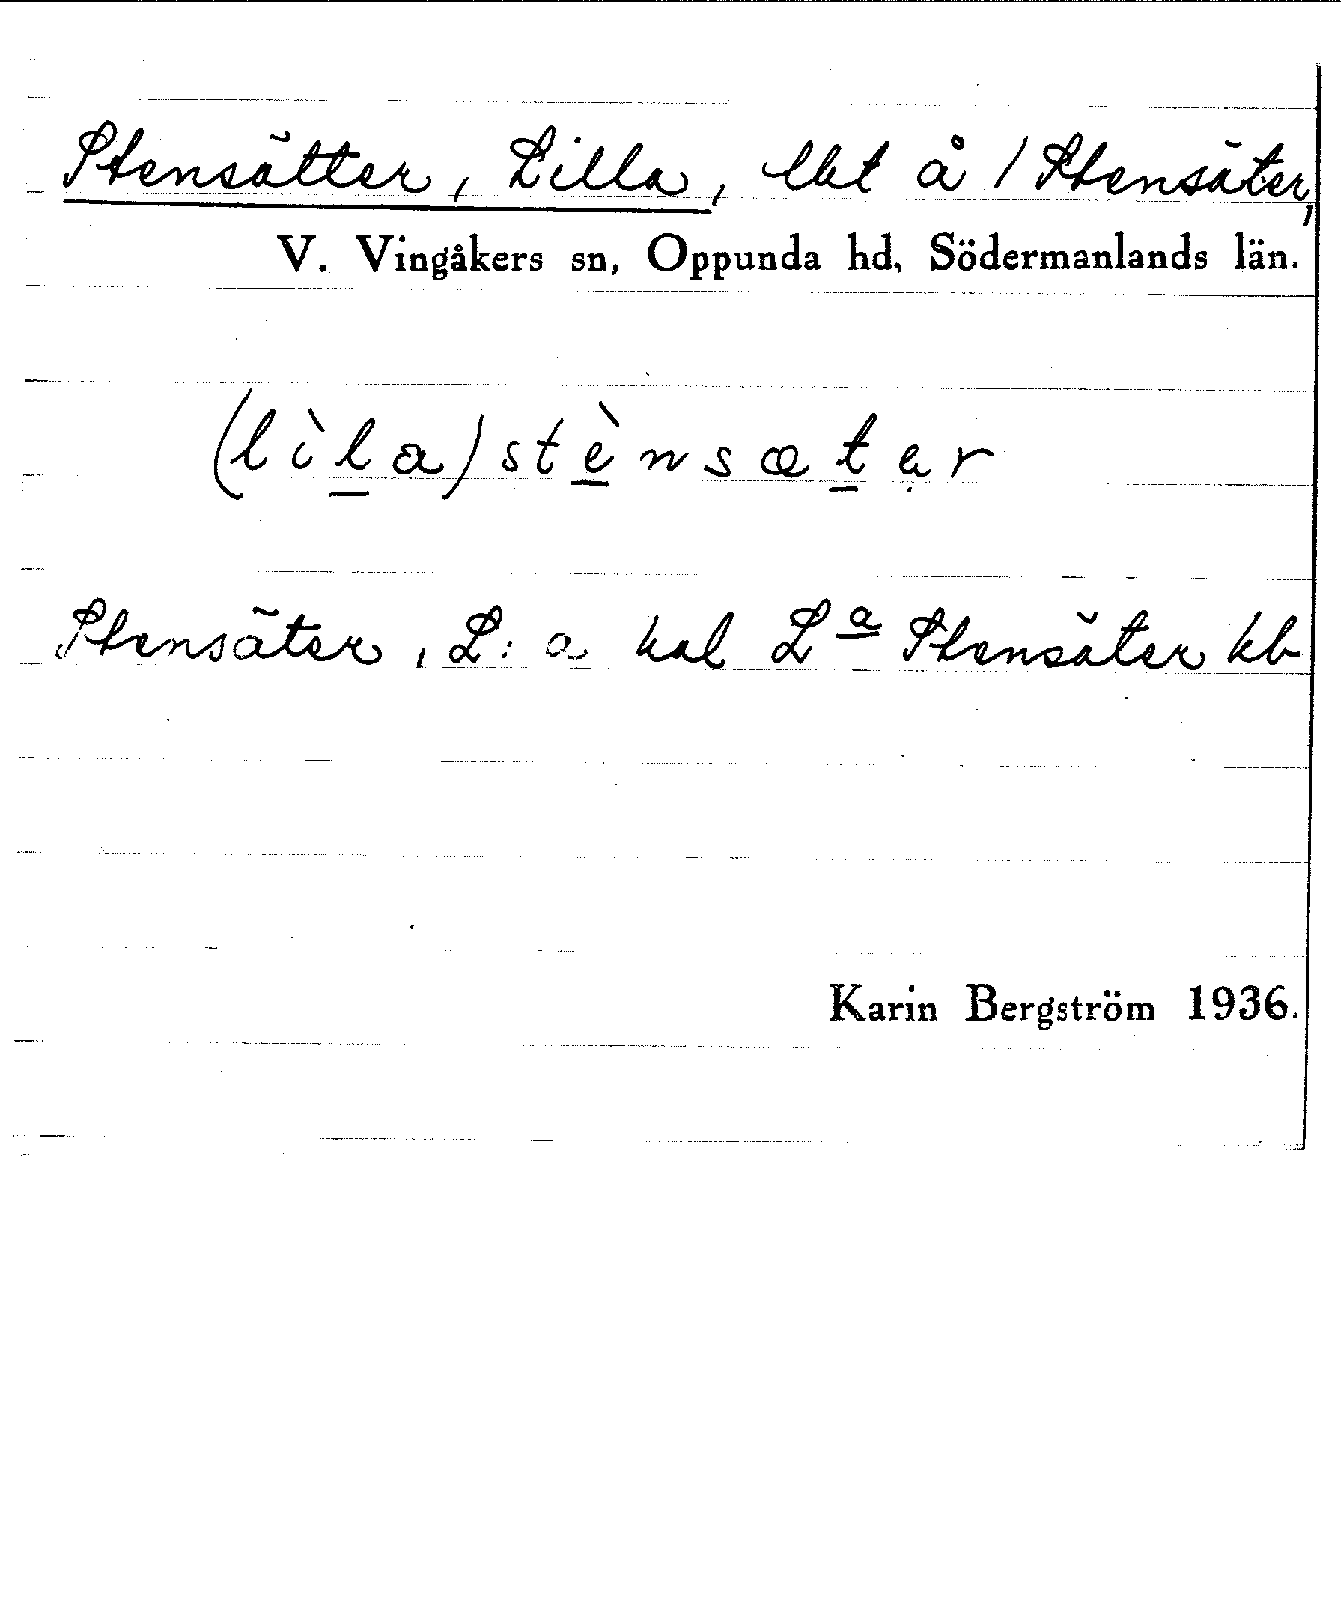 Stensätter, Lilla, lht å 1 Stensäter,
V. Vingåkers sn, Oppunda hd, Södermanlands län.
(lìl̲a)stè̲nsæt̲ạr
Stensäter, L:a kal Lª Stensäter kb
Karin Bergström 1936.